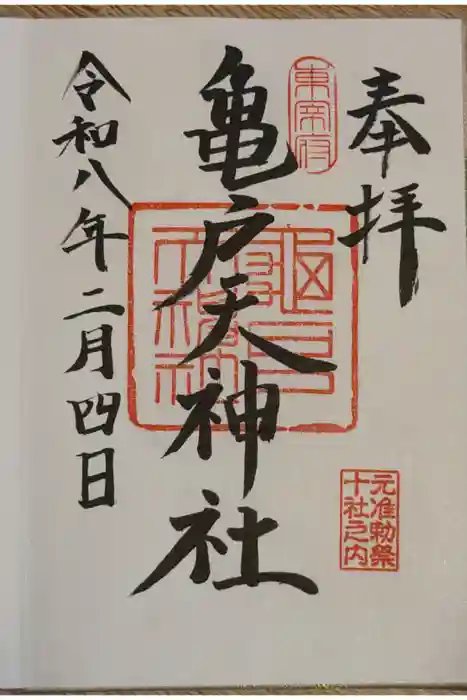 奉拝
東宰府
亀戸天神社
元准勅祭
十社之内
令和八年二月四日